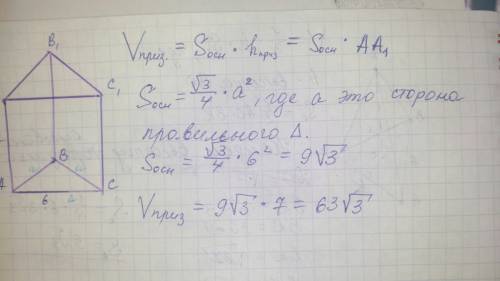 Vприз. = Sосн · hприз = Sосн · AA₁
Sосн = √3/4 · a², где a это сторона
правильного Δ.
Sосн = √3/4 · 6² = 9√3
Vприз = 9√3 · 7 = 63√3
B₁
C₁
B
A
C
6